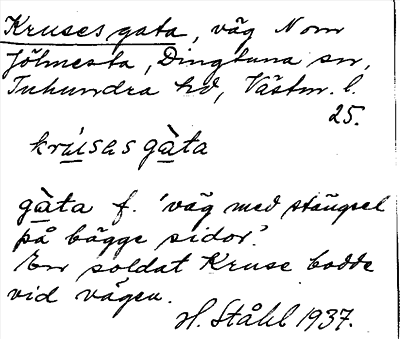 Kruses gata, väg N om
Jölmesta, Dingtuna sn,
Tuhundra hd, Västm. l.
25.
krúsas gàta
gàta f. 'väg med stängsel
på bägge sidor.'
En soldat Kruse bodde
vid vägen.
H. Ståhl 1937.